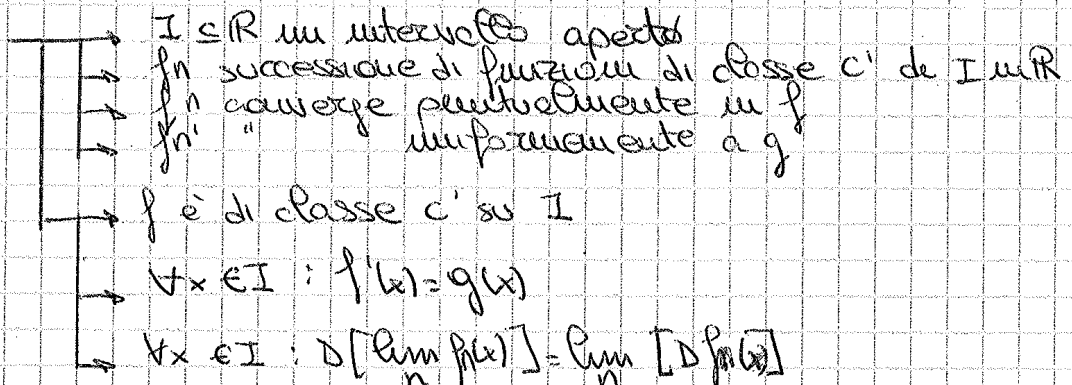 I ⊆ ℝ un intervallo aperto
fn successione di funzioni di classe C' da I in ℝ
fn converge puntualmente in f
fn' " uniformemente a g
f è di classe C' su I
∀x ∈ I : f'(x) = g(x)
∀x ∈ I : D[lim fn(x)] = lim [D fn(x)]
n n